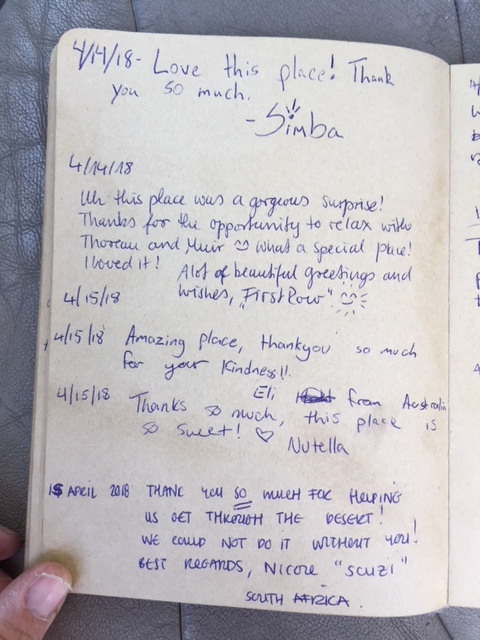 4/14/18 - Love this place! Thank
you so much.
- Simba
4/14/18
Uh this place was a gorgeous surprise!
Thanks for the opportunity to relax with
Thoreau and Muir ☺ what a special place!
I loved it! Alot of beautiful greetings and
wishes, "First Row"
4/15/18
4/15/18 Amazing place, thankyou so much
for your kindness!!
Eli from Australia
4/15/18 Thanks so much, this place is
so sweet! ♡
Nutella
15 APRIL 2018 THANK YOU SO MUCH FOR HELPING
US GET THROUGH THE DESERT!
WE COULD NOT DO IT WITHOUT YOU!
BEST REGARDS, NICOLE "SCUZI"
SOUTH AFRICA.